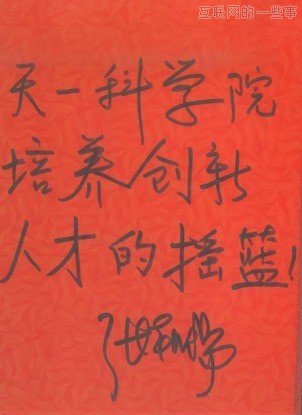 互联网的一些事
天一科学院
培养创新
人才的摇篮!